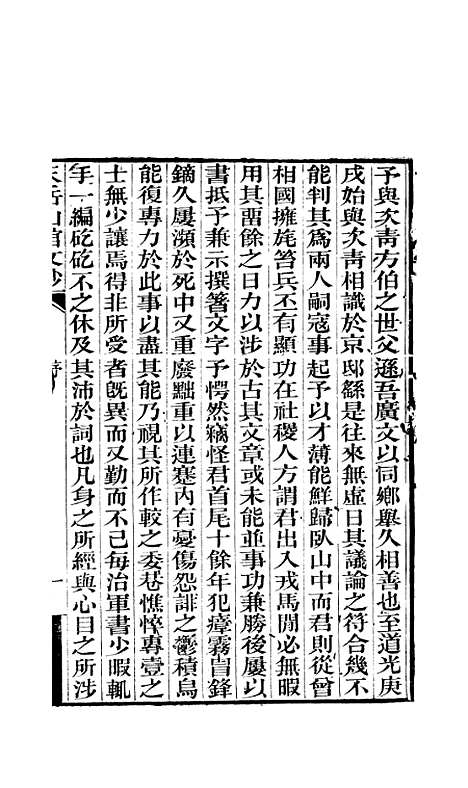 予與次青方伯之世父遜吾廣文以同鄉舉久相善也至道光庚
戌始與次青相識於京邸繇是往來無虛日其議論之符合幾不
能判其爲兩人嗣寇事起予以才薄能鮮歸臥山中而君則從曾
相國擁旄笞兵丕有顯功在社稷人方謂君出入戎馬閒必無暇
用其畱餘之日力以涉於古其文章或未能並事功兼勝後屢以
書抵予兼示撰箸文字予愕然竊怪君首尾十餘年犯瘴霧冒鋒
鏑久屢瀕於死中又重廢黜重以連蹇內有憂傷怨誹之鬱積烏
能復專力於此事以盡其能乃視其所作較之委巷憔悴專壹之
士無少讓焉得非所受者旣異而又勤而不已每治軍書少暇輒
手一編矻矻不之休及其沛於詞也凡身之所經與心目之所涉
天岳山館文鈔
一